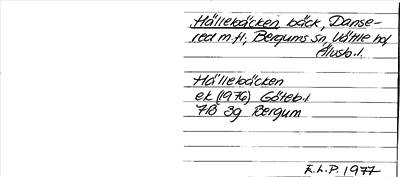 Hällebäcken bäck, Danse-
red m.fl., Bergums sn, Vättle hd
Älvsb. l.
Hällebäcken
ek (1976) Göteb. l
7B 3g Bergum
E.L.P. 1977